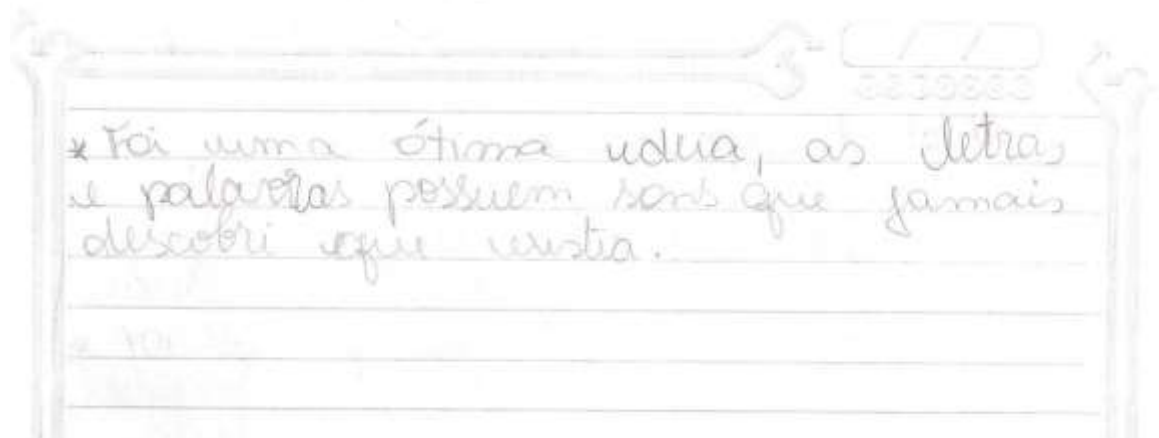 * Foi uma ótima ideia, as letras
e palavras possuem sons que jamais
descobri que existia.